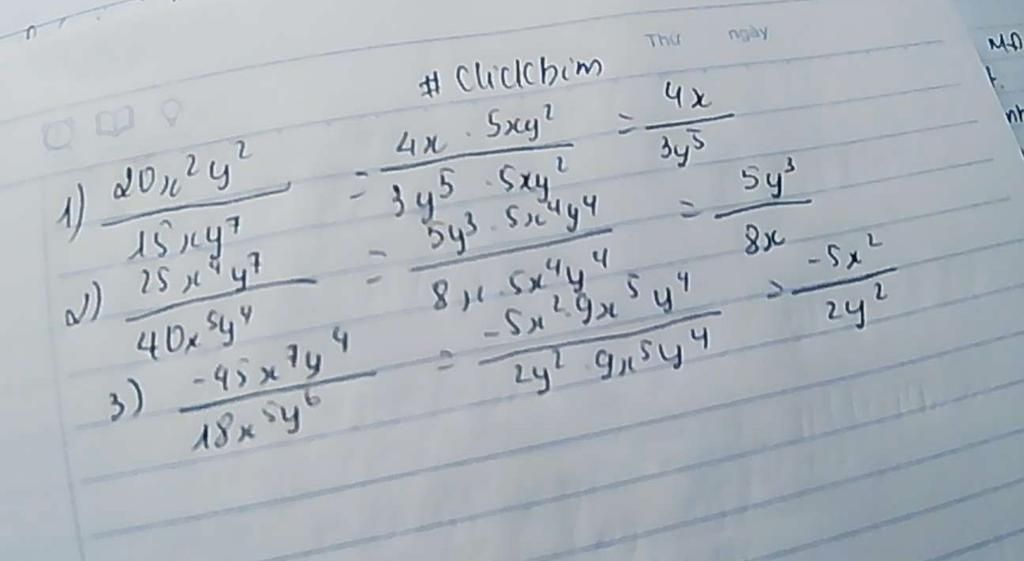 Thứ ngày
#ClickChim
1) 20x²y² / 15xy⁷ = 4x · 5xy² / 3y⁵ · 5xy² = 4x / 3y⁵
2) 25x⁴y⁷ / 40x⁵y⁴ = 5y³ · 5x⁴y⁴ / 8x · 5x⁴y⁴ = 5y³ / 8x
3) -45x⁷y⁴ / 18x⁵y⁶ = -5x² · 9x⁵y⁴ / 2y² · 9x⁵y⁴ = -5x² / 2y²